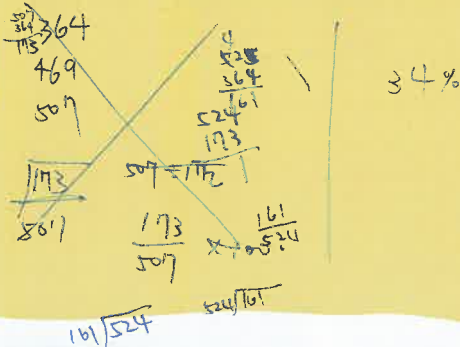 507
364
173
364
469
507
173
507
4
525
364
161
524
173
507 ÷ 173
173
507
161
524
34%
161)524
524)161